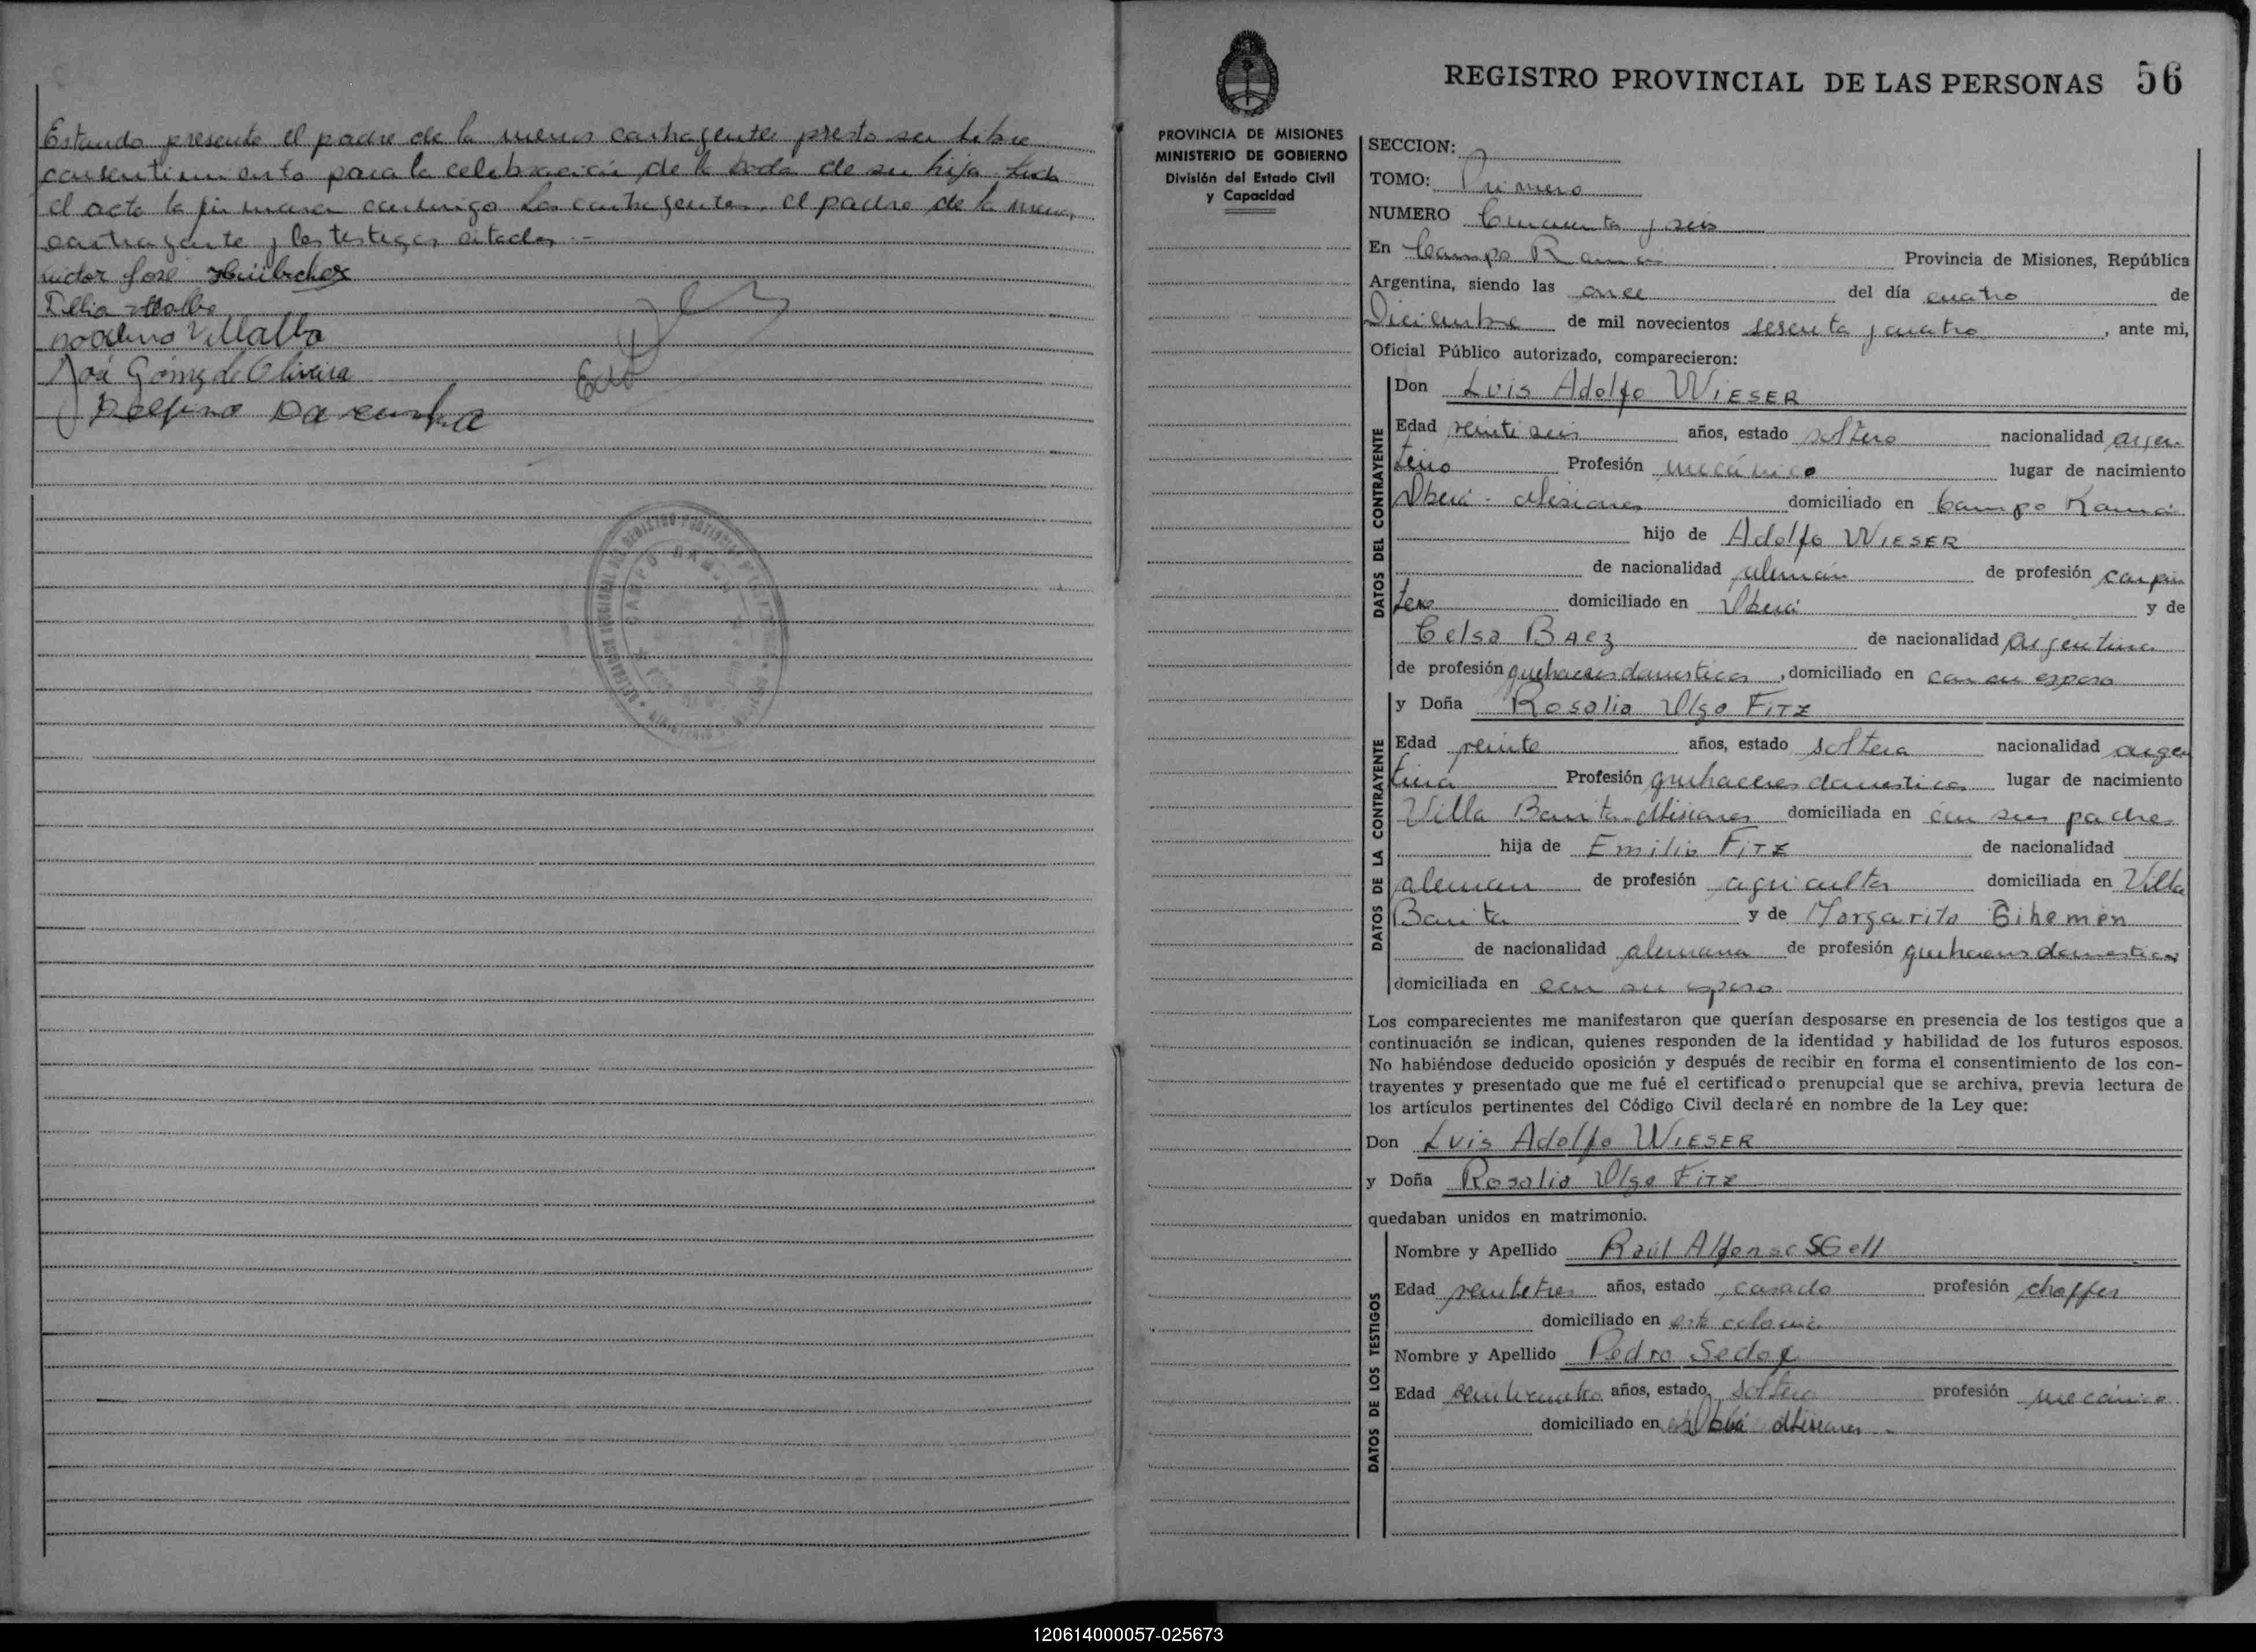 Estando presente el padre de la menor contrayente presto su libre
consentimiento para la celebración de la boda de su hija. Leida
el acta la firmaron conmigo los contrayentes, el padre de la menor,
contrayente y los testigos citados.-
Victor José
Villalba
José Gómez de Oliveira
Delfino Da cunha
REGISTRO PROVINCIAL DE LAS PERSONAS 56
PROVINCIA DE MISIONES
MINISTERIO DE GOBIERNO
División del Estado Civil
y Capacidad
SECCION:
TOMO: Primero
NUMERO Cincuenta y seis
En Campo Ramón Provincia de Misiones, República
Argentina, siendo las once del día cuatro de
Diciembre de mil novecientos sesenta y cuatro, ante mi,
Oficial Público autorizado, comparecieron:
DATOS DEL CONTRAYENTE
Don Luis Adolfo WIESER
Edad veintiseis años, estado soltero nacionalidad argen
tino Profesión mecánico lugar de nacimiento
Oberá - Misiones domiciliado en Campo Ramón
hijo de Adolfo WIESER
de nacionalidad alemán de profesión carpin
tero domiciliado en Oberá y de
Celsa BAEZ de nacionalidad argentina
de profesión quehaceres domesticos, domiciliado en con su esposo
DATOS DE LA CONTRAYENTE
y Doña Rosalia Olga FITZ
Edad veinte años, estado soltera nacionalidad argen
tina Profesión quehaceres domesticos lugar de nacimiento
Villa Bonita-Misiones domiciliada en con sus padres
hija de Emilio FITZ de nacionalidad
aleman de profesión agricultor domiciliada en Villa
Bonita y de Margarita
de nacionalidad alemana de profesión quehaceres domesticos
domiciliada en con su esposo
Los comparecientes me manifestaron que querían desposarse en presencia de los testigos que a
continuación se indican, quienes responden de la identidad y habilidad de los futuros esposos.
No habiéndose deducido oposición y después de recibir en forma el consentimiento de los con-
trayentes y presentado que me fué el certificado prenupcial que se archiva, previa lectura de
los artículos pertinentes del Código Civil declaré en nombre de la Ley que:
Don Luis Adolfo WIESER
y Doña Rosalia Olga FITZ
quedaban unidos en matrimonio.
DATOS DE LOS TESTIGOS
Nombre y Apellido Raúl Alfonso
Edad veintetres años, estado casado profesión choffer
domiciliado en esta colonia
Nombre y Apellido Pedro
Edad veinticuatro años, estado soltero profesión mecánico
domiciliado en Oberá Misiones -
120614000057-025673